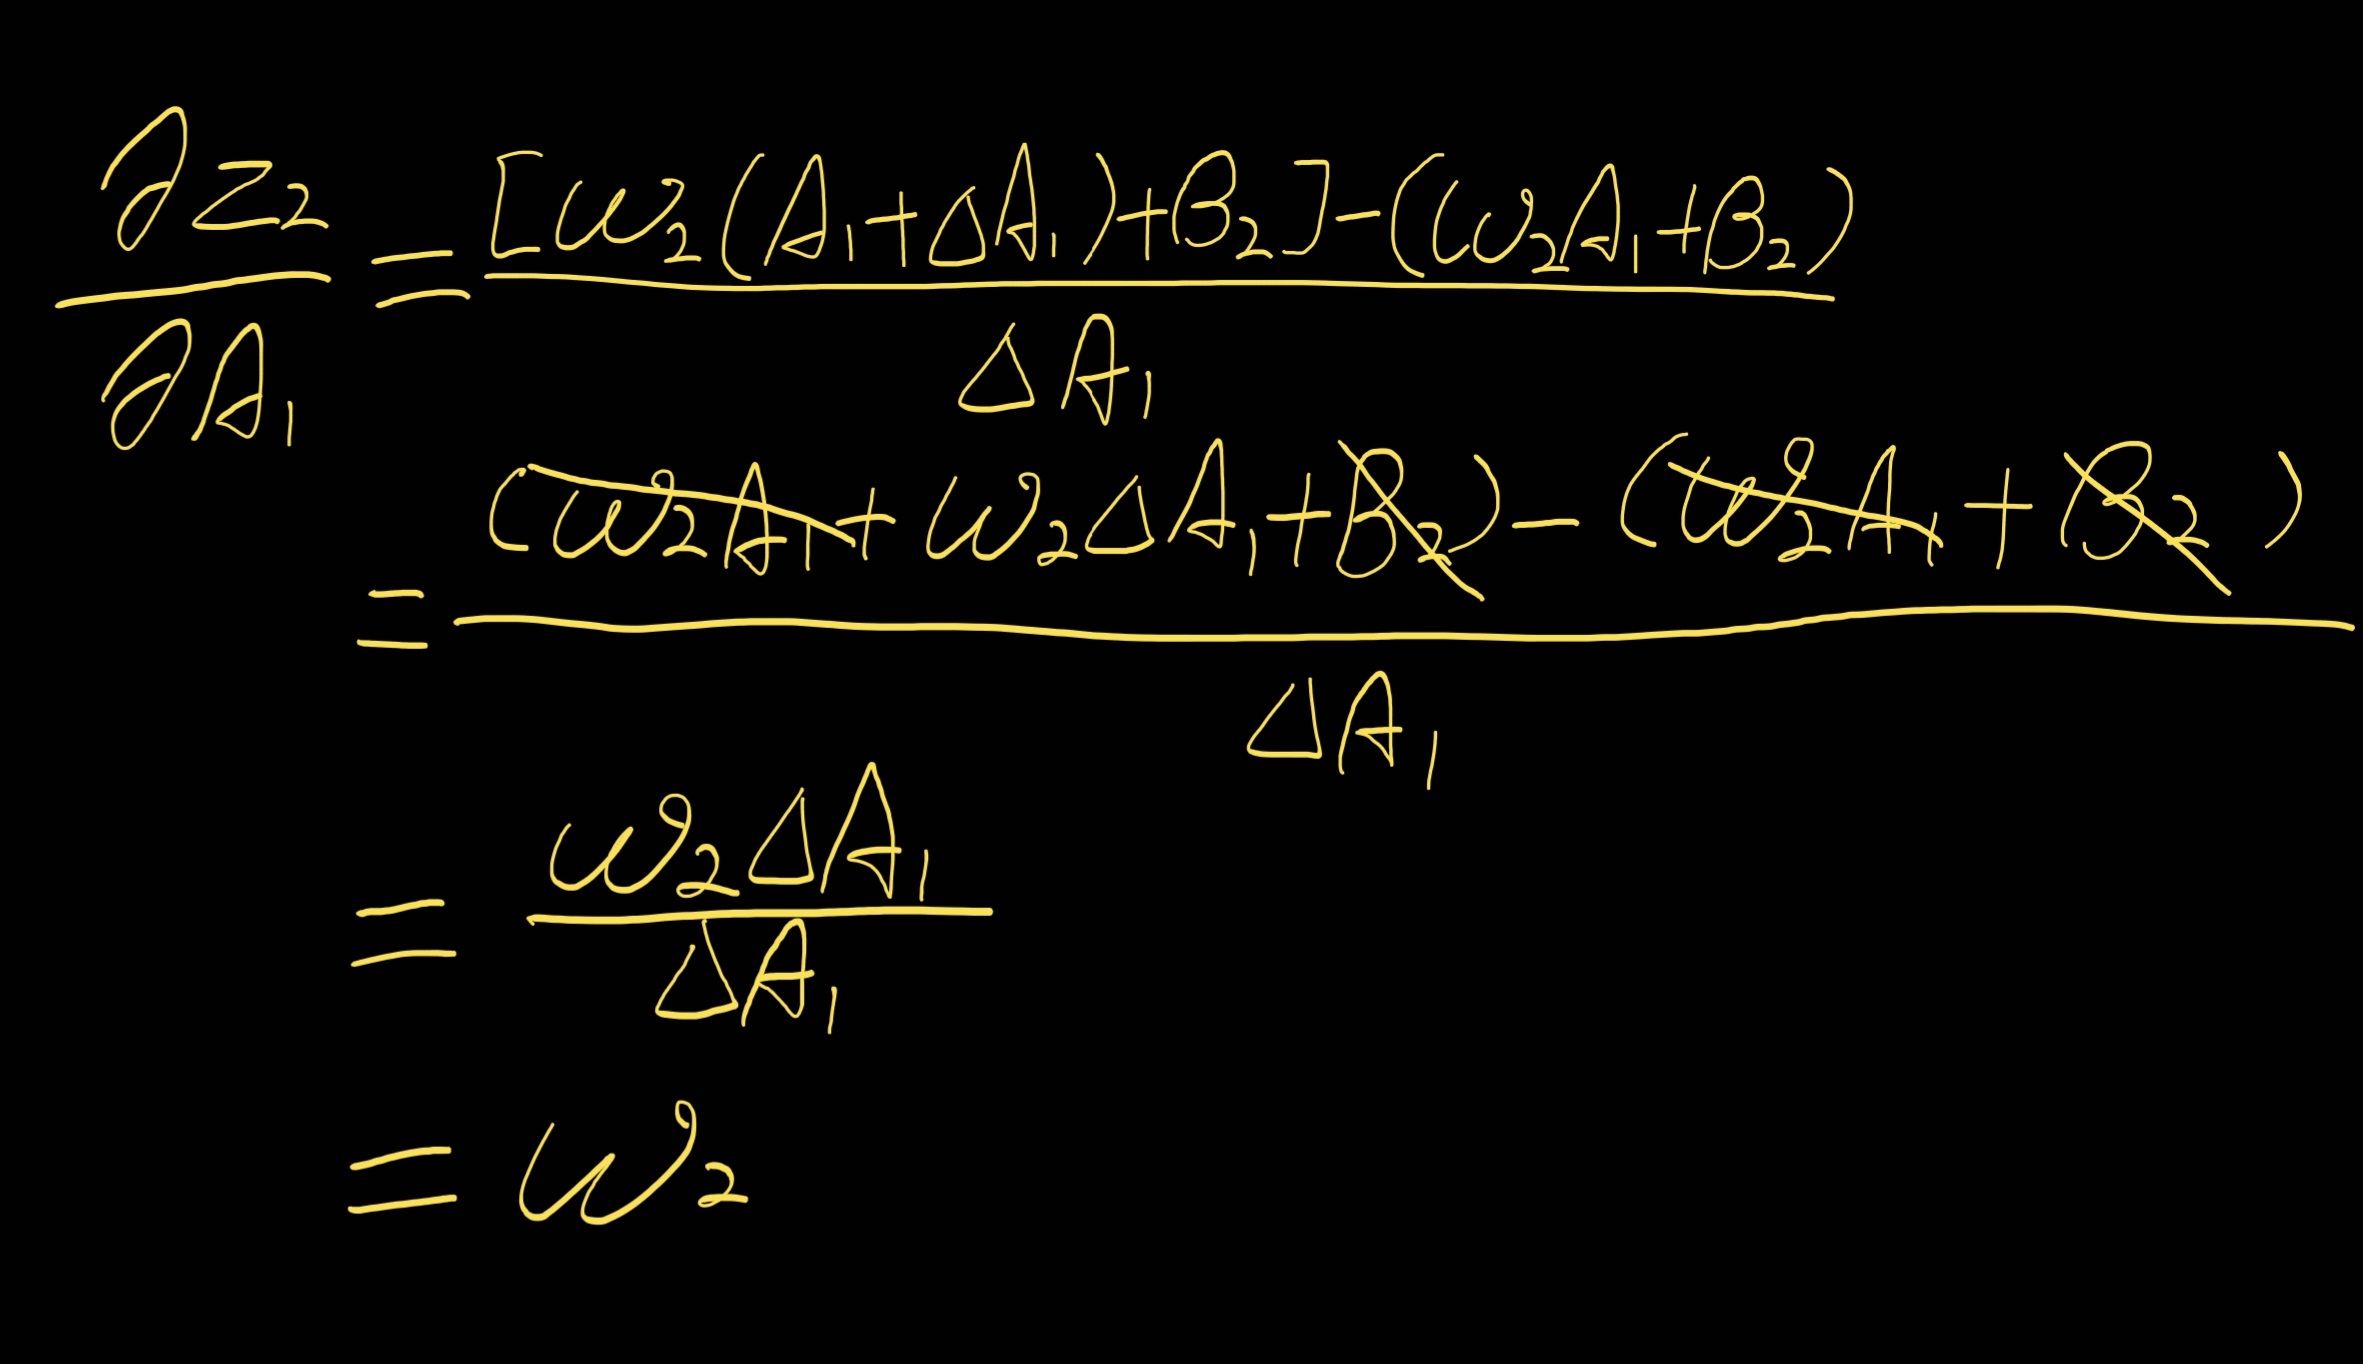 ∂Z₂/∂A₁ = ([W₂(A₁+ΔA₁)+B₂]-(W₂A₁+B₂))/ΔA₁
= ((W₂A₁+W₂ΔA₁+B₂)-(W₂A₁+B₂))/ΔA₁
= W₂ΔA₁/ΔA₁
= W₂